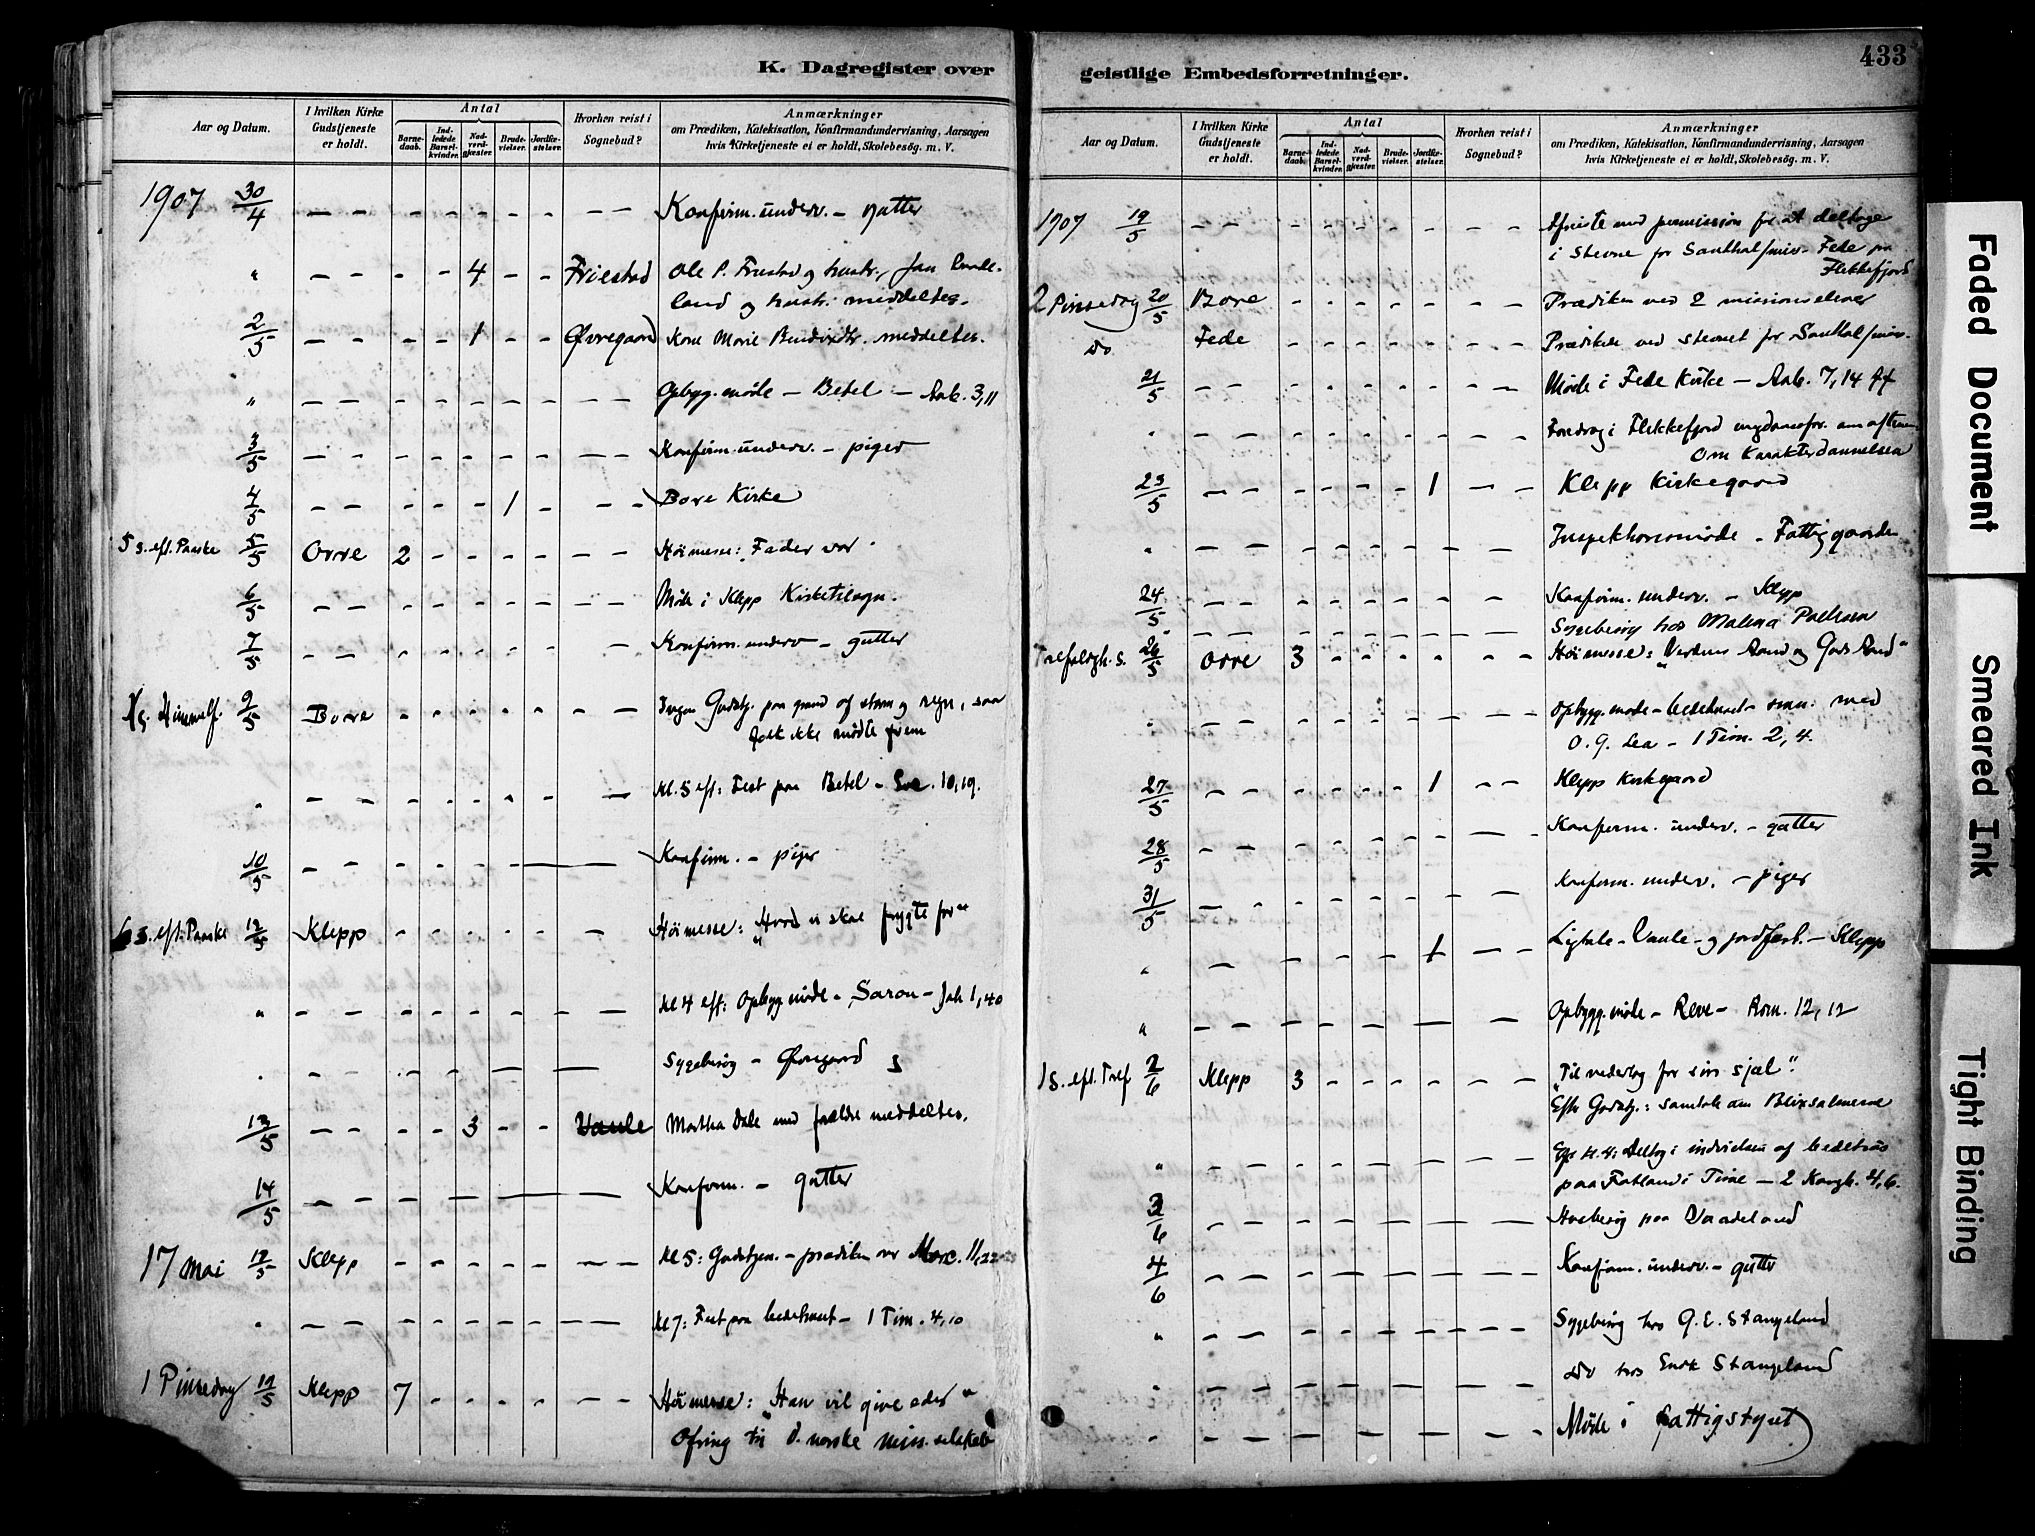 K. Dagregister over
Aar og Datum.
I hvilken Kirke Gudstjeneste er holdt.
Antal
Barnedaab.
Indledede Barselkvinder.
Nadverdgjester.
Brudevielser.
Jordfæstelser.
Hvorhen reist i Sognebud?
Anmærkninger
om Prædiken, Katekisation, Konfirmandundervisning, Aarsagen
hvis Kirketjeneste ei er holdt, Skolebesøg. m. V.
1907 30/4 — — - - - - - — — Konfirm. underv. — gutter
" — — - - 4 - - Friestad Ole P. Friestad og hustr., Jan
land og hustr. meddeltes.
2/5 — — - - 1 - - Øvregaard Kone Marie meddeltes.
" — — - - - - - — — Opbygg. møde — Betel — Aab. 3,11
3/5 — — - - - - - — — Konfirm. underv. — piger
4/5 — — - - - 1 - — — Bore Kirke
5 s. eft. Paaske 5/5 Orre 2 - - - - — — Høimesse: Fader vor
6/5 — — - - - - - — — Møde i Klepp Kirketilsyn.
7/5 — — - - - - - — Konfirm. underv — gutter
Himmelf. 9/5 Bore - - - - - — — Ingen Gudstj. paa grund af storm og regn, saa
folk ikke mødte frem
" — — - - - - - — Kl. 5 eft: Fest paa Betel - 10,19.
10/5 — — - - - — — Konfirm. — piger
6 s. eft. Paaske 12/5 Klepp - - - - - — — Høimesse: "Hvad vi skal frygte for"
" — — - - - - - — — Kl 4 eft: Opbyg. møde - Saron — Joh 1,40
" — — - - - — — Sygebesøg — Øvregaard
13/5 — — - - 3 - - Vaule Martha Dale med forældre meddeltes.
14/5 — — - - - — — Konfirm. — gutter
17 Mai 17/5 Klepp - - - - - — — Kl 5: Gudstjen. — prædiken over Marc. 11,22
" — — - - - - - — — Kl 7: Fest paa bedehuset — 1 Tim. 4,10
1 Pinsedag 19/5 Klepp 7 - - - - — — Høimesse: "Han vil give eder"
Ofring til d. norske miss. selskab
geistlige Embedsforretninger.
433
Aar og Datum.
I hvilken Kirke Gudstjeneste er holdt.
Antal
Barnedaab.
Indledede Barselkvinder.
Nadverdgjester.
Brudevielser.
Jordfæstelser.
Hvorhen reist i Sognebud?
Anmærkninger
om Prædiken, Katekisation, Konfirmandundervisning, Aarsagen
hvis Kirketjeneste ei er holdt, Skolebesøg. m. V.
1907 19/5 — — - - - - - — — Afreiste med permission for at deltage
i stevne for Santhalmis. Fede pr
Flekkefjord
2 Pinsedag 20/5 Bore - - - - - — — Prædiken ved 2 missionselever
Do Fede - - - - - — — Prædikede ved stevnet for Santhalmis.
21/5 — — - - - - - — — Møde i Fede Kirke — Aab. 7,14 ff
" — — - - - - - — — Foredrag i Flekkefjord ungdomsfor. om aftenen
Om Karakterdannelsen
23/5 — — - - - - 1 — — Klepp Kirkegaard
" — — - - - - - — — Inspektionsmøde - Fattiggaarden
24/5 — — - - - - - — — Konfirm. underv. — Klepp
" — — - - - - - — — Sygebesøg hos Malena
Trefoldigh. s. 26/5 Orre 3 - - - - — — Høimesse: "Verdens Aand og Guds Aand"
" — — - - - - - — — Opbygg. møde - bedehuset - sm. med
O. G. Lea — 1 Tim. 2,4.
27/5 — — - - - - 1 — — Klepp Kirkegaard
28/5 — — - - - - - — — Konfirm. underv. — gutter
31/5 — — - - - - - — — Konfirm. underv. — piger
" — - - - - 1 — — Ligtale - Vaule - og jordfæst. — Klepp
" — — - - - - - — — Opbygg. møde — Reve — Rom. 12,12
1 s. eft. Tref 2/6 Klepp 3 - - - - — — "Til vederlag for sin sjæl".
Efter Gudstj.: samtale om Blixsalmerne
" — — - - - - - — — Eft. kl. 4: Deltog i indvielsen af bedehus
paa Fotland i Time — 2 Kongb. 4,6.
3/6 — — - - - - - — — Husbesøg paa Vaadeland
4/6 — — - - - - - — — Konfirm. underv. — gutter
" — — - - - - - — — Sygebesøg hos G. E. Stangeland
" — — - - - - - — — Do hos Enok Stangeland
" — — - - - - - — — Møde i fattigstyret
Faded Document
Smeared Ink
Tight Binding